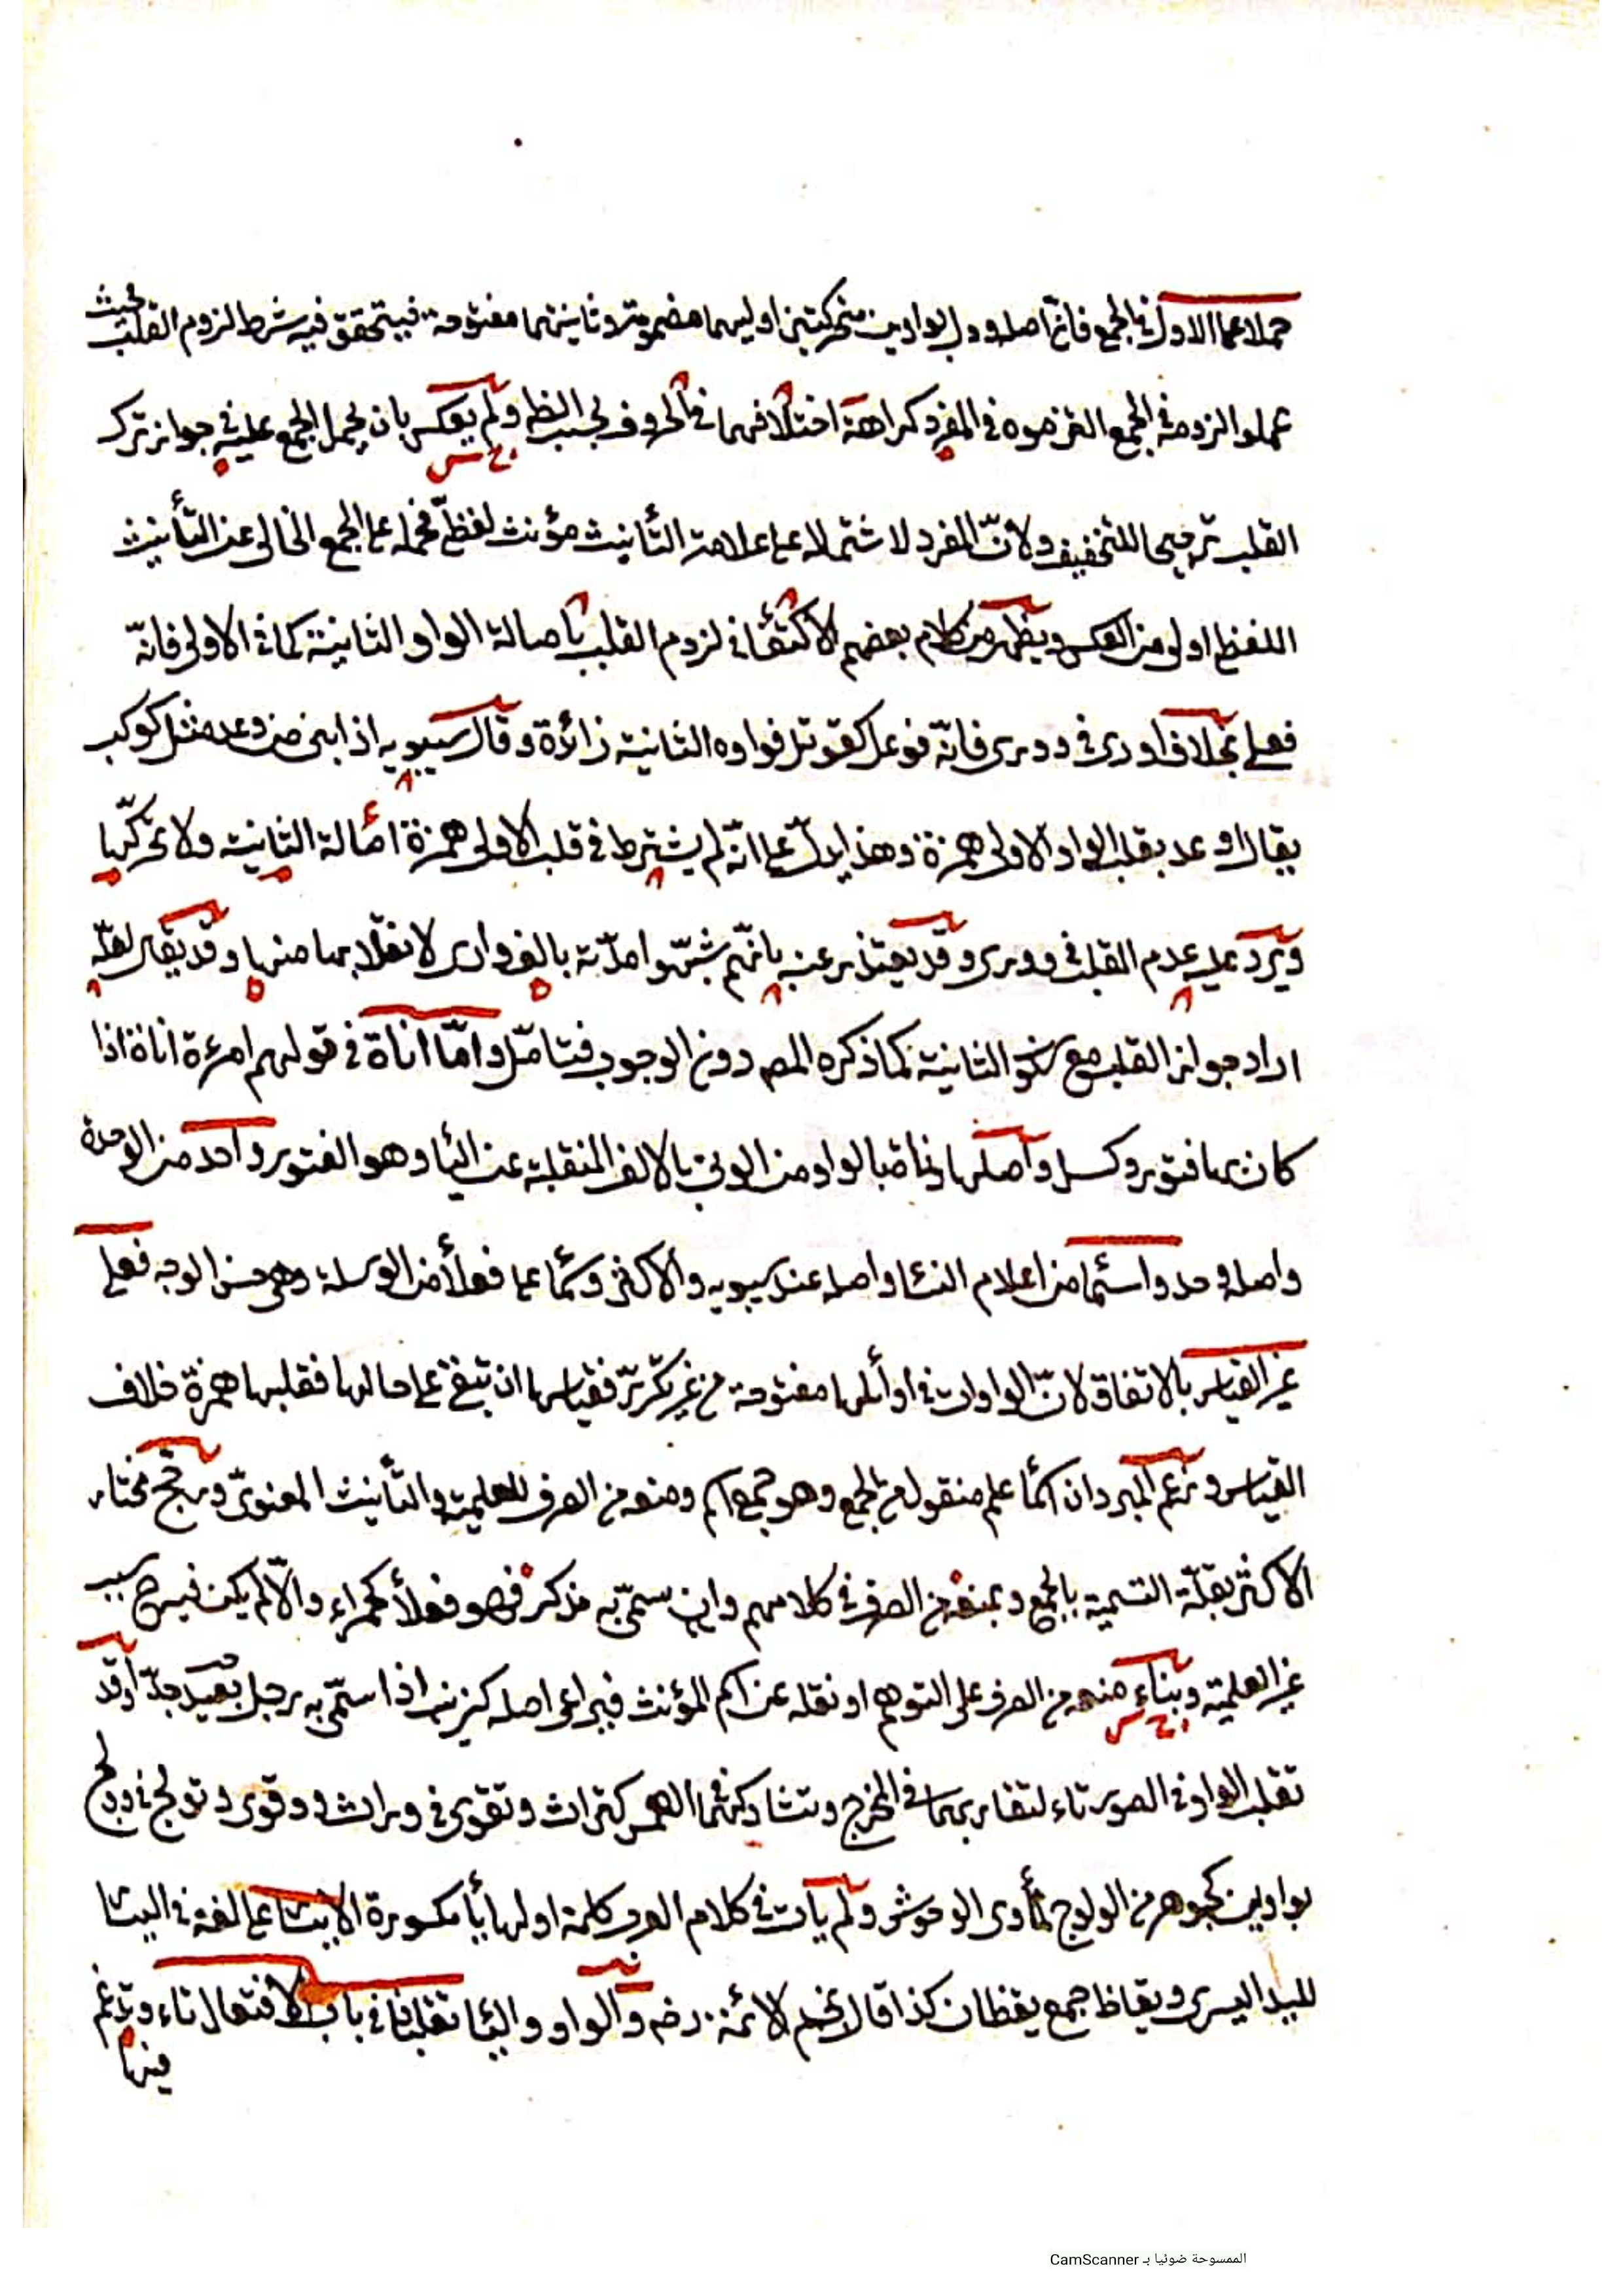 حملا على الاول في الجمع فانّ اصله وول بواوين متحركتين اوليهما مضمومة وثانيتهما مفتوحة فيتحقق فيه شرط لزوم القلب فحيث
عملوا لزومه في الجمع التزموه في المفرد كراهة اختلافهما في الحروف بحسب النظم ولم يعكس بان يحمل الجمع عليه في جواز ترك
القلب ترجيحا للتخفيف ولانّ المفرد لاشتماله على علامة التأنيث مؤنث لفظيّ فحمله على الجمع الخالى عن التأنيث
اللفظى اولى من العكس ويظهر من كلام بعضهم الاكتفاء في لزوم القلب بأصالة الواو الثانية كما في الاولى فانّه
فعلى بخلاف اورى في وورى فانّه فوعل كقوتل فواوه الثانية زائدة وقال سيبويه اذا بنى من وعد مثل كوكب
يقال اوعد بقلب الواو الاولى همزة وهذا يدلّ على انّه لم يشترط في قلب الاولى همزة اصالة الثانية ولا تحرّكها
ويرد عليه عدم القلب في وورى وقد يعتذر عنه بانّهم شبّهوا مدّته بالف وارى لانقلابها منها وقد يقال لعلّه
اراد جواز القلب مع سكون الثانية كما ذكره المص دون الوجوب فتامّل وامّا اناة في قولهم امرءة اناة اذا
كان بها فتور وكسل واصلها وناة بالواو من الونى بالالف المنقلبة عن الياء وهو الفتور واحد من الوحدة
واصله وحد واسماء من اعلام النساء واصله عند سيبويه والاكثر وسماء على فعلاء من الوسامة وهى حسن الوجه فعلى
غير القياس بالاتفاق لانّ الواوات في اوائلها مفتوحة من غير تكرّر فقياسها ان تبقى على حالها فقلبها همزة خلاف
القياس وزعم المبرد ان اسماء علم منقول من الجمع وهو جمع اسم ومنعه من الصرف للعلمية والتأنيث المعنوىّ ورجّح مختار
الاكثر بقلّة التسمية بالجمع وبمنعه من الصرف في كلامهم وان سمّى به مذكر فهو فعلاء كحمراء والّا لم يكن فيه ح سبب
غير العلمية وبناء منعه من الصرف على التوهم او نقله عن اسم المؤنث فيراعى اصله كزينب اذا سمّى به رجل بعيد جدّا وقد
تقلب الواو في الصور تاء لتقاربهما في المخرج وتشاركهما الهمس كتراث وتقوى في وراث ووقوى وتولج في وولج
بواوين كجوهر من الولوج لمأوى الوحوش ولم يأت في كلام العرب كلمة اولها ياء مكسورة الا يسار على لغة في اليسار
لليد اليسرى ويقاظ جمع يقظان كذا قال نجم الائمة رضه والواو والياء تقلبان في باب الافتعال تاء وتدغم
فيها
الممسوحة ضوئيا بـ CamScanner